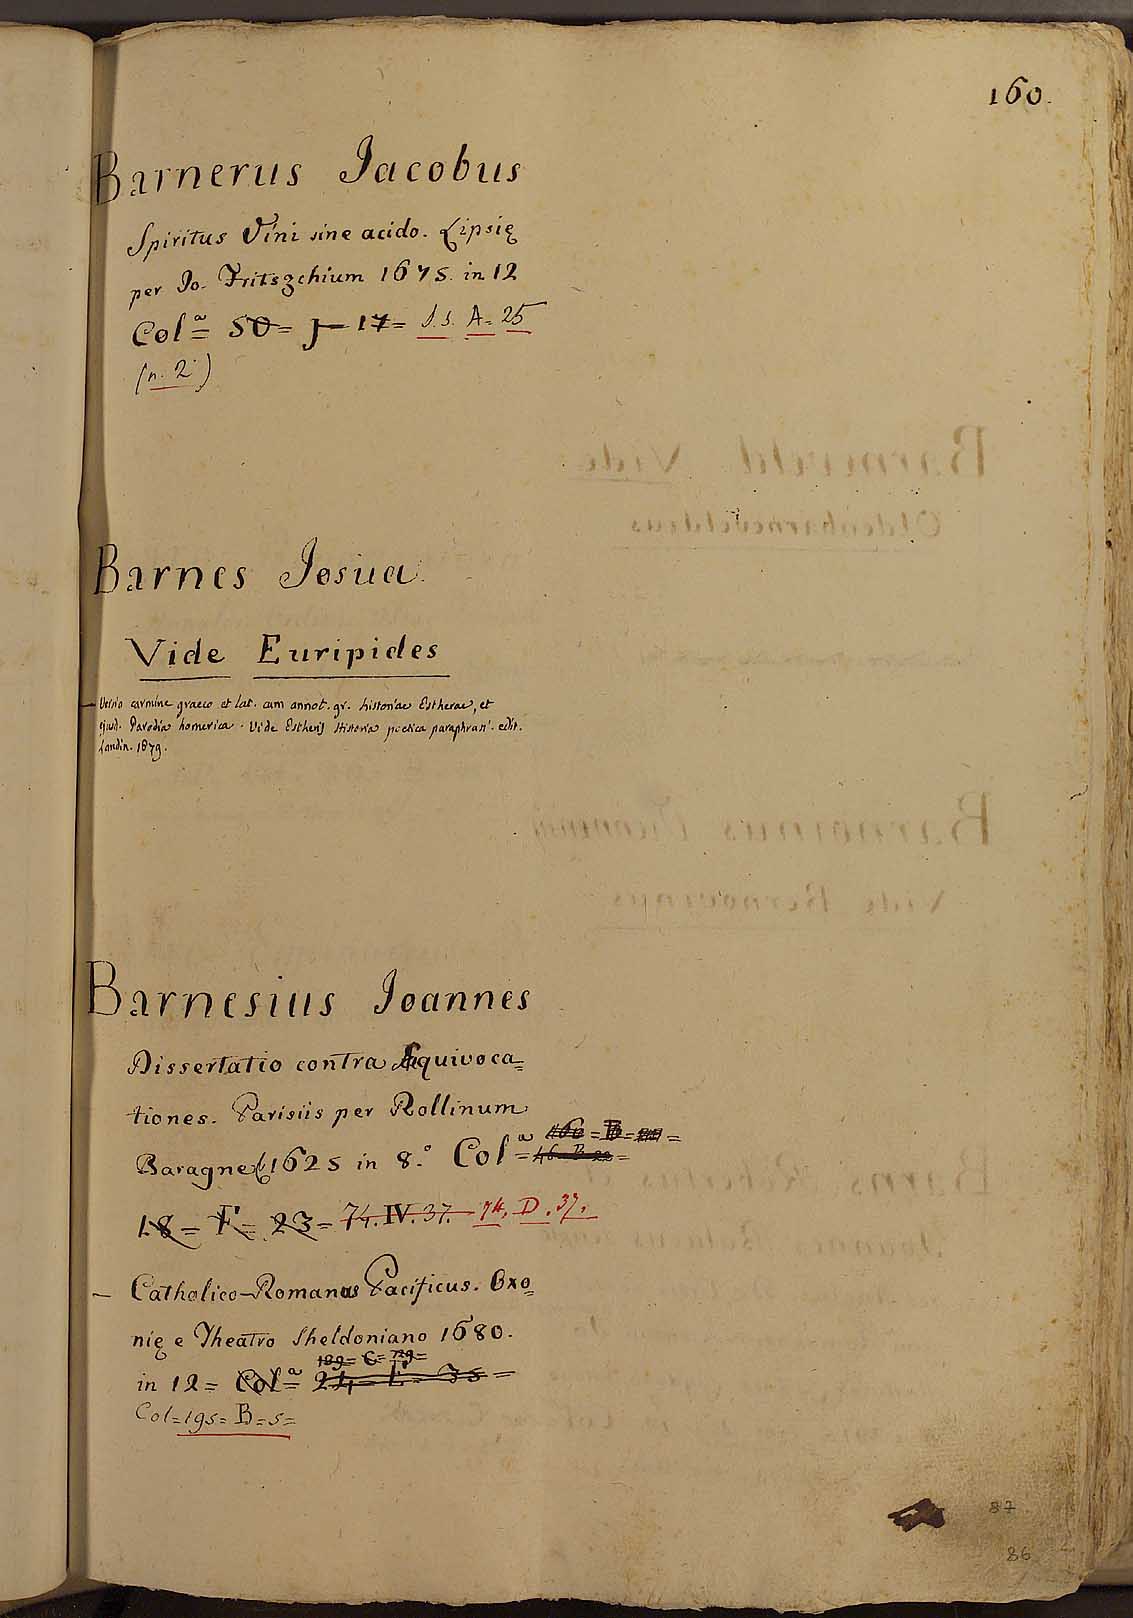 160.
Barnerus Jacobus
Spiritus Vini sine acido. Lipsię
per Jo. Fritszchium 1675. in 12
Colª= 50= J= 17= S.S. A= 25
(n. 2)
Barnes Josua.
Vide Euripides
- Versio carmine graeco et lat. cum annot. gr. historiae Estherae, et
ejusd. Parodia homerica. Vide Estheris Historia poetica paraphrasi. edit.
Londin. 1879.
Barnesius Joannes
Dissertatio contra Æquivoca=
tiones. Parisiis per Rollinum
Baragnes 1625 in 8.º Colª=
18= F= 23= 74. IV. 37. 74. D. 37.
- Catholico-Romanus Pacificus. Oxo=
nię e Theatro Sheldoniano 1680.
189= C= 729=
in 12= Colª= 24= E= 35=
Col=195= B=5=
87
86